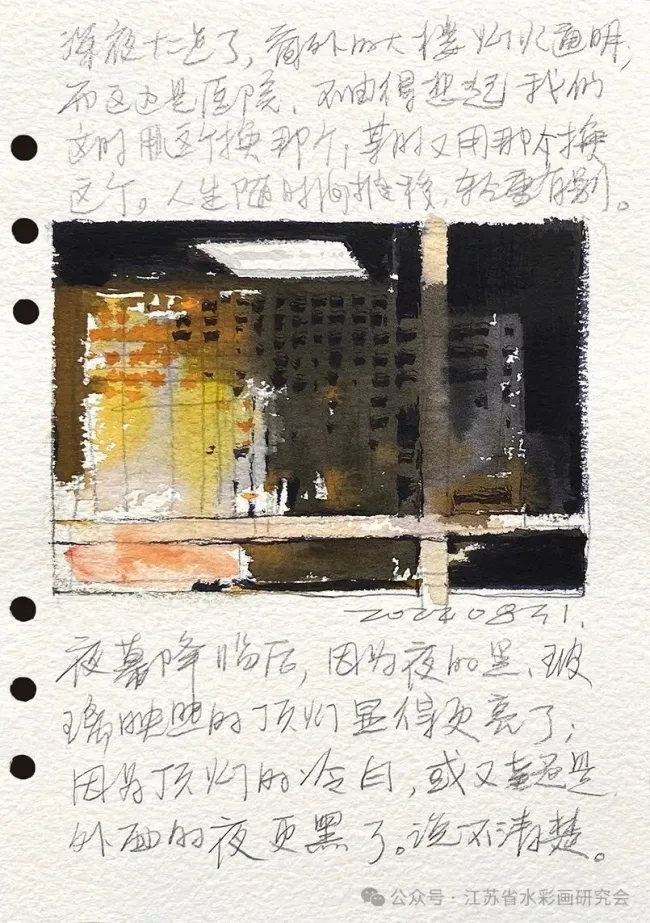 深夜十二点了，窗外的大楼灯火通明，
而这边是医院，不由得想起我们
时用这个换那个；时又用那个换
这个。人生随时间推移，轻重有别。
夜幕降临后，因为夜的黑，玻
璃映照的顶灯显得更亮了；
因为顶灯的冷白，或又是
外面的夜更黑了。说不清楚。
公众号·江苏省水彩画研究会